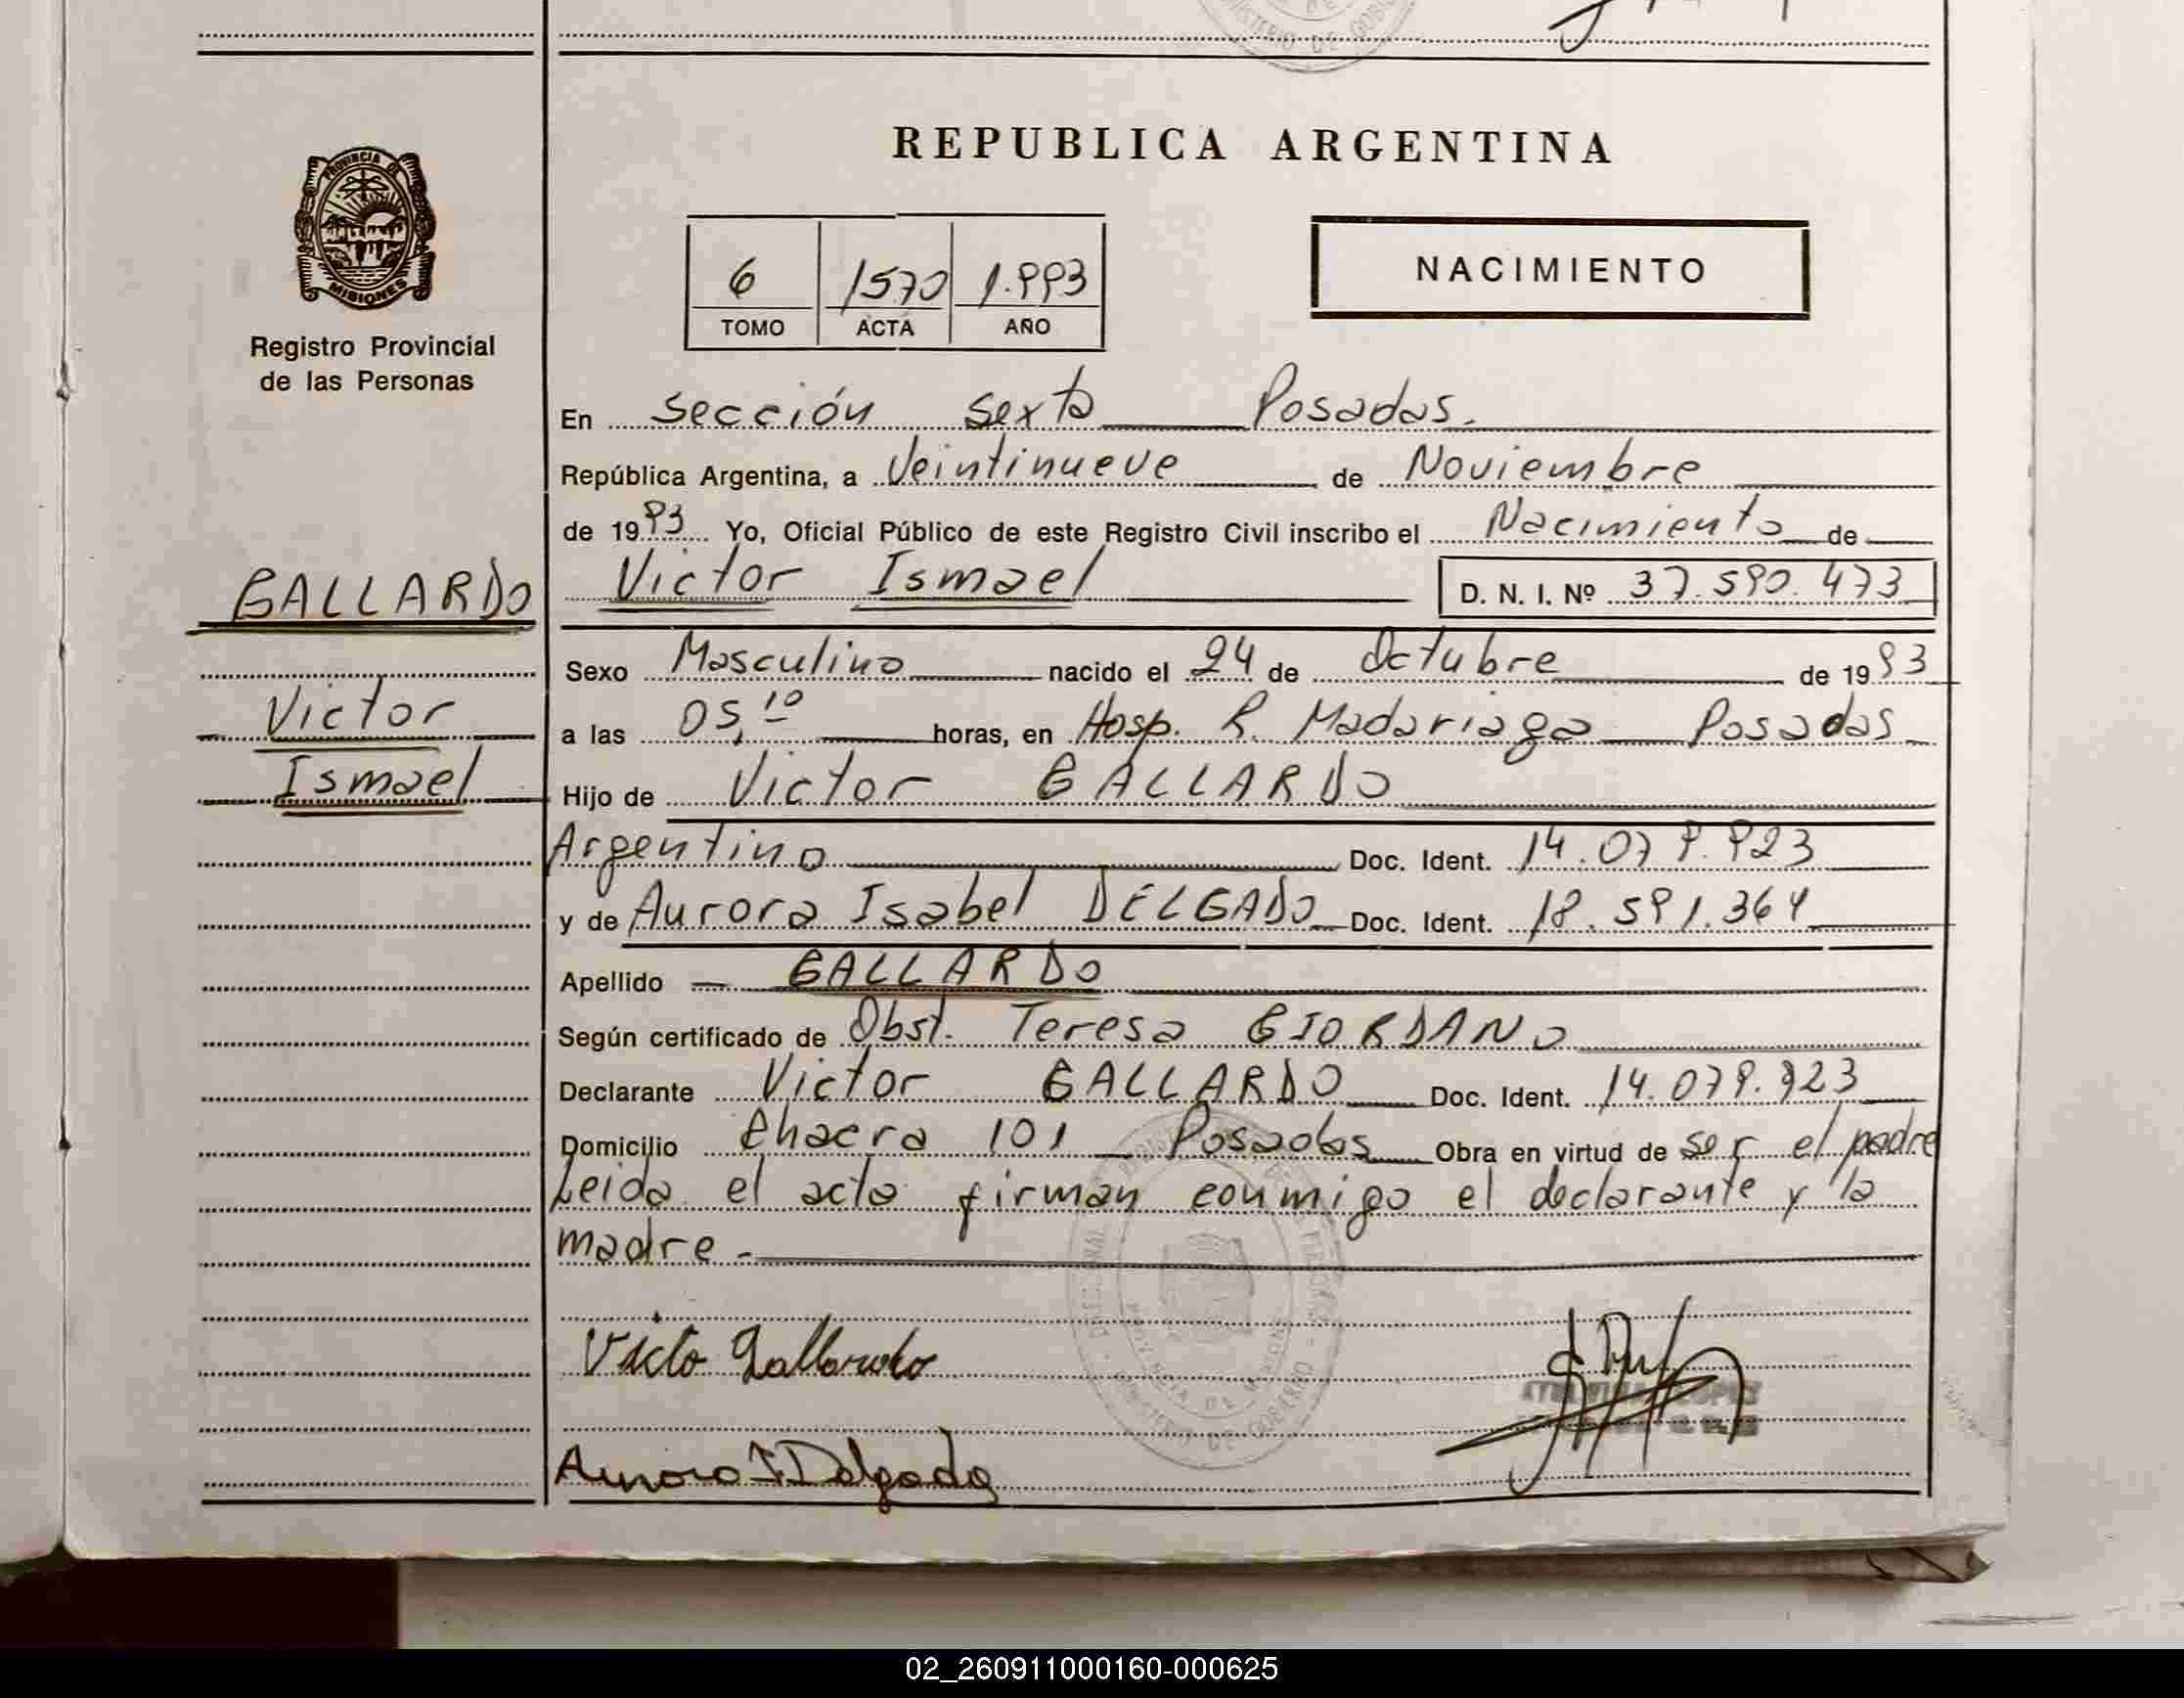 MINISTERIO DE GOBIERNO
REPUBLICA ARGENTINA
PROVINCIA DE
MISIONES
Registro Provincial
de las Personas
6 1570 1.993
TOMO ACTA AÑO
NACIMIENTO
En Sección Sexta Posadas.
República Argentina, a Veintinueve de Noviembre
de 1993 Yo, Oficial Público de este Registro Civil inscribo el Nacimiento de
GALLARDO
Victor Ismael D. N. I. Nº 37.590.473
Sexo Masculino nacido el 24 de Octubre de 1993
Victor
a las 05,10 horas, en Hosp. R. Madariaga Posadas
Ismael
Hijo de Victor GALLARDO
Argentino Doc. Ident. 14.079.923
y de Aurora Isabel DELGADO Doc. Ident. 18.591.364
Apellido GALLARDO
Según certificado de Obst. Teresa GIORDANO
Declarante Victor GALLARDO Doc. Ident. 14.079.923
Domicilio Chacra 101 Posadas Obra en virtud de ser el padre
Leida el acta firman conmigo el declarante y la
madre.-
Victo Gallardo
Aurora I Delgado
PROVINCIA DE MISIONES
MINISTERIO DE GOBIERNO
02_260911000160-000625